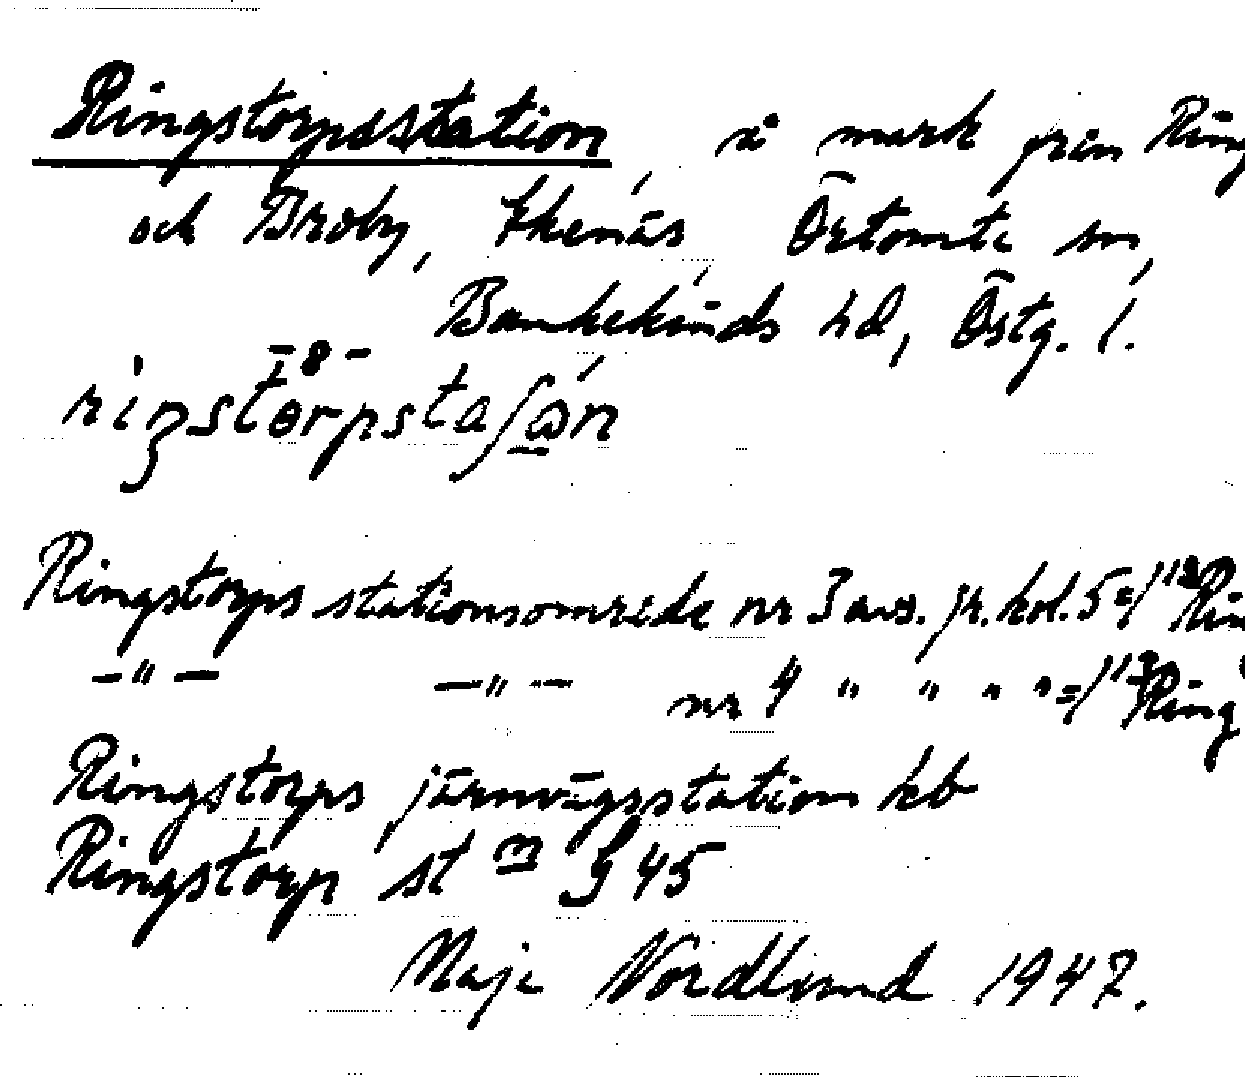 Ringstorpsstation, å mark från Ring
och Broby, Ekenäs, Örtomta sn,
Bankekinds hd, Östg. l.
-8-
Ringstorps stationsområde nr 3 avs. jr. kol. 5 =/ 1/13 Rin
-"- -"- nr 4 " " " " =/ 1/13 Ring
Ringstorps järnvägsstation kb
Ringstorp st m G 45
Maja Nordlund 1947.